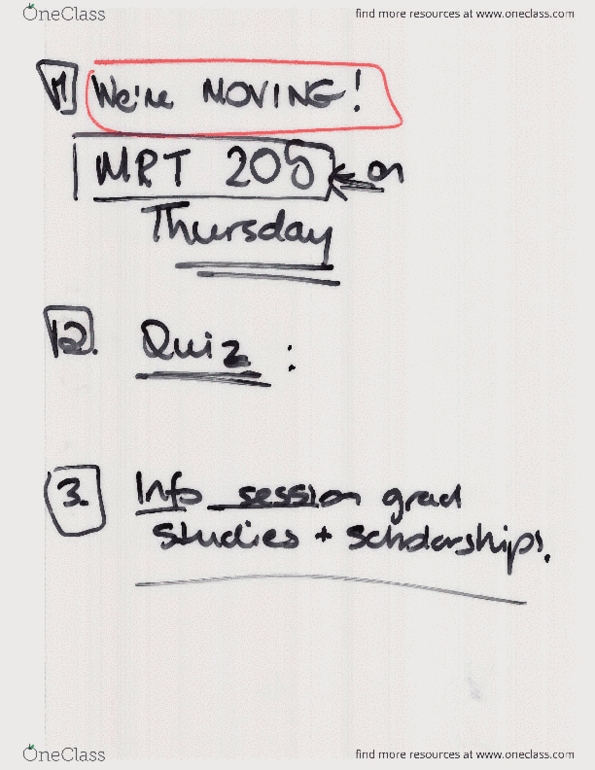 OneClass find more resources at www.oneclass.com
1. We're MOVING!
MRT 205 ← on
Thursday
2. Quiz :
3. Info session grad
studies + scholarships.
OneClass find more resources at www.oneclass.com